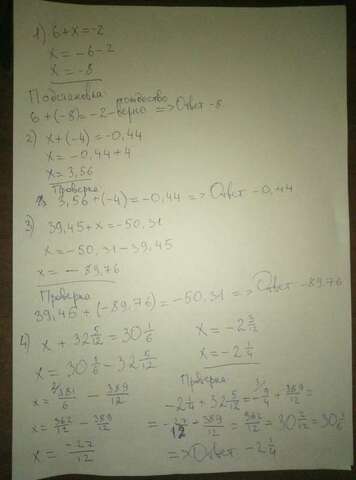 1) 6+x=-2
x=-6-2
x=-8
Подстановка тождество
6+(-8)=-2-верно => Ответ -8
2) x+(-4)=-0,44
x=-0,44+4
x=3,56
Проверка
3,56+(-4)=-0,44 => Ответ -0,44
3) 39,45+x=-50,31
x=-50,31-39,45
x=-89,76
Проверка
39,45+(-89,76)=-50,31 => Ответ -89,76
4) x+32 5/12=30 1/6
x=30 1/6-32 5/12
x=181/6-389/12
x=362/12-389/12
x=-27/12
x=-2 3/12
x=-2 1/4
Проверка
-2 1/4+32 5/12=-9/4+389/12=
=-27/12-389/12=362/12=30 2/12=30 1/6
=> Ответ -2 1/4